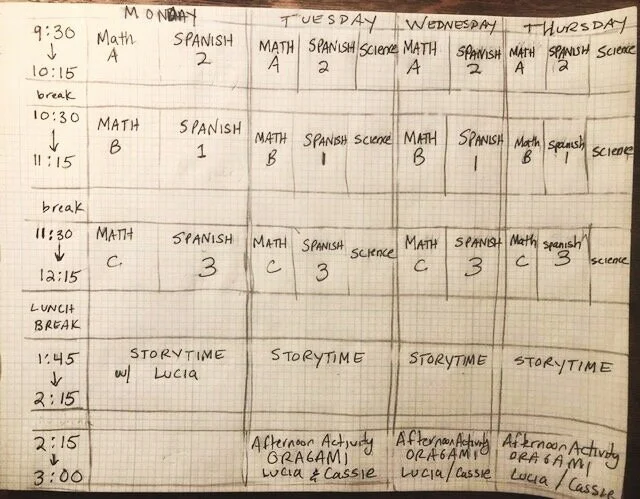 MONDAY TUESDAY WEDNESDAY THURSDAY
9:30 Math SPANISH MATH SPANISH Science MATH SPANISH MATH SPANISH Science
↓ A 2 A 2 A 2 A 2
10:15
break
10:30 MATH SPANISH MATH SPANISH Science MATH SPANISH Math Spanish Science
↓ B 1 B 1 B 1 B 1
11:15
break
11:30 MATH SPANISH MATH SPANISH Science MATH SPANISH Math spanish science
↓ C 3 C 3 C 3 C 3
12:15
LUNCH
BREAK
1:45 STORYTIME STORYTIME STORYTIME STORYTIME
↓ w/ LUCIA
2:15
2:15 Afternoon Activity Afternoon Activity Afternoon Activity
↓ ORAGAMI ORAGAMI ORAGAMI
3:00 LUCIA & CASSIE LUCIA / CASSIE LUCIA / CASSIE